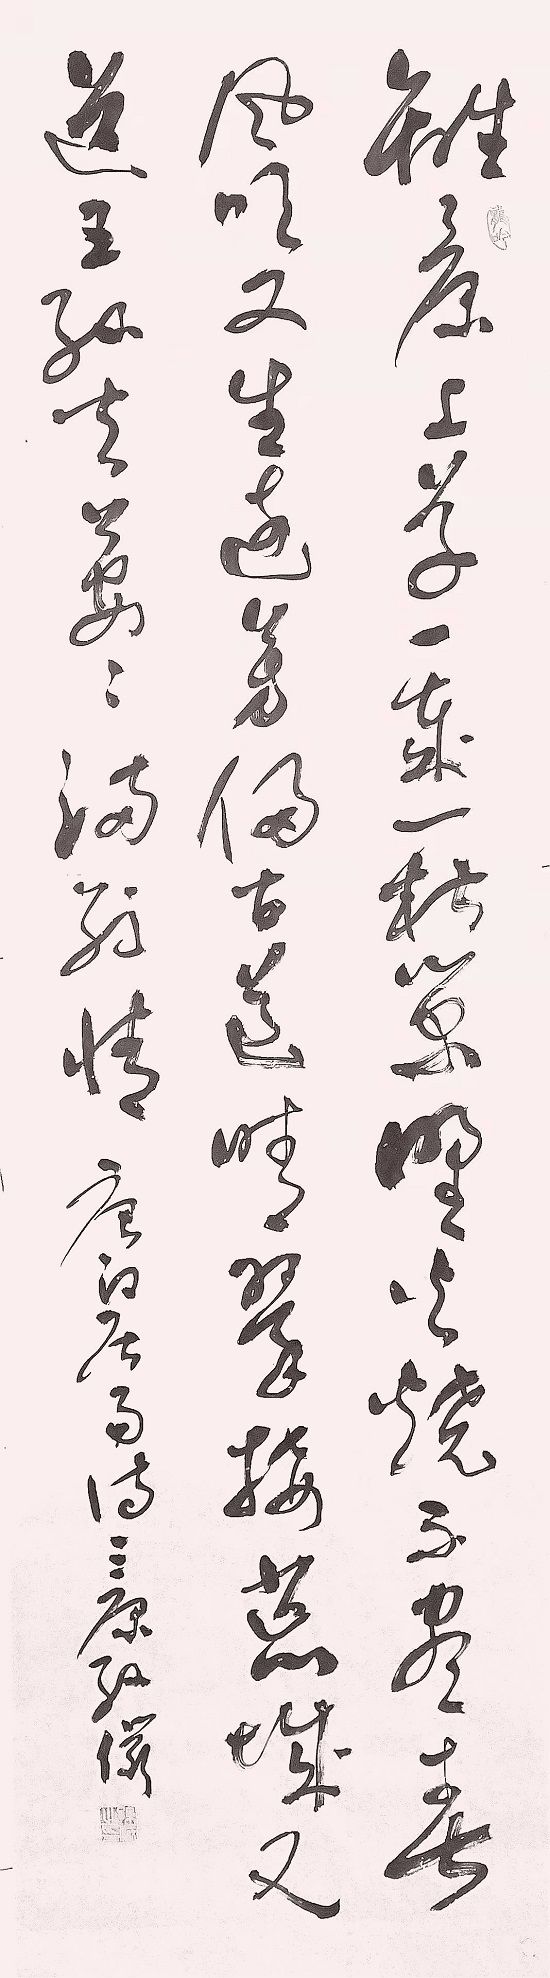 離〻原上草一歲一枯榮野火燒不盡春
風吹又生遠芳侵古道晴翠接荒城又
送王孫去萋〻滿別情 唐白居易詩 三原